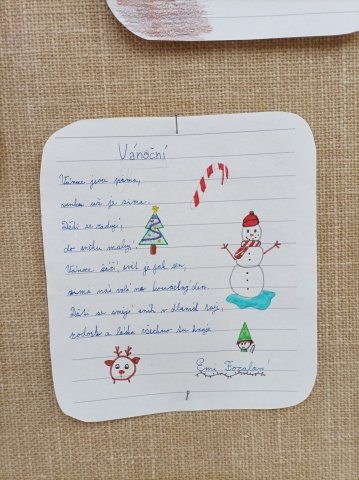 Vánoční
Vánoce jsou
venku už je zima.
Děti se radují,
do sněhu malují.
Vánoce září, svět je jak sen,
zima nás volá na kouzelný den.
Děti se smějí sníh v dlaních taje,
radost a láska všechno tu
Emi